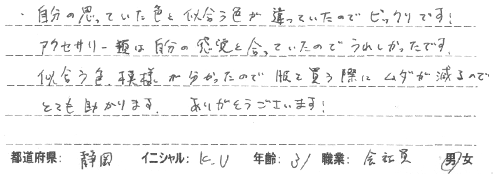 ・自分の思っていた色と似合う色が違っていたのでビックリです!
アクセサリー類は自分の感覚と合っていたのでうれしかったです。
似合う色、模様が分かったので服を買う際にムダが減るので
とても助かります。 ありがとうございます!
都道府県: 静岡 イニシャル: K.U 年齢: 31 職業: 会社員 男女